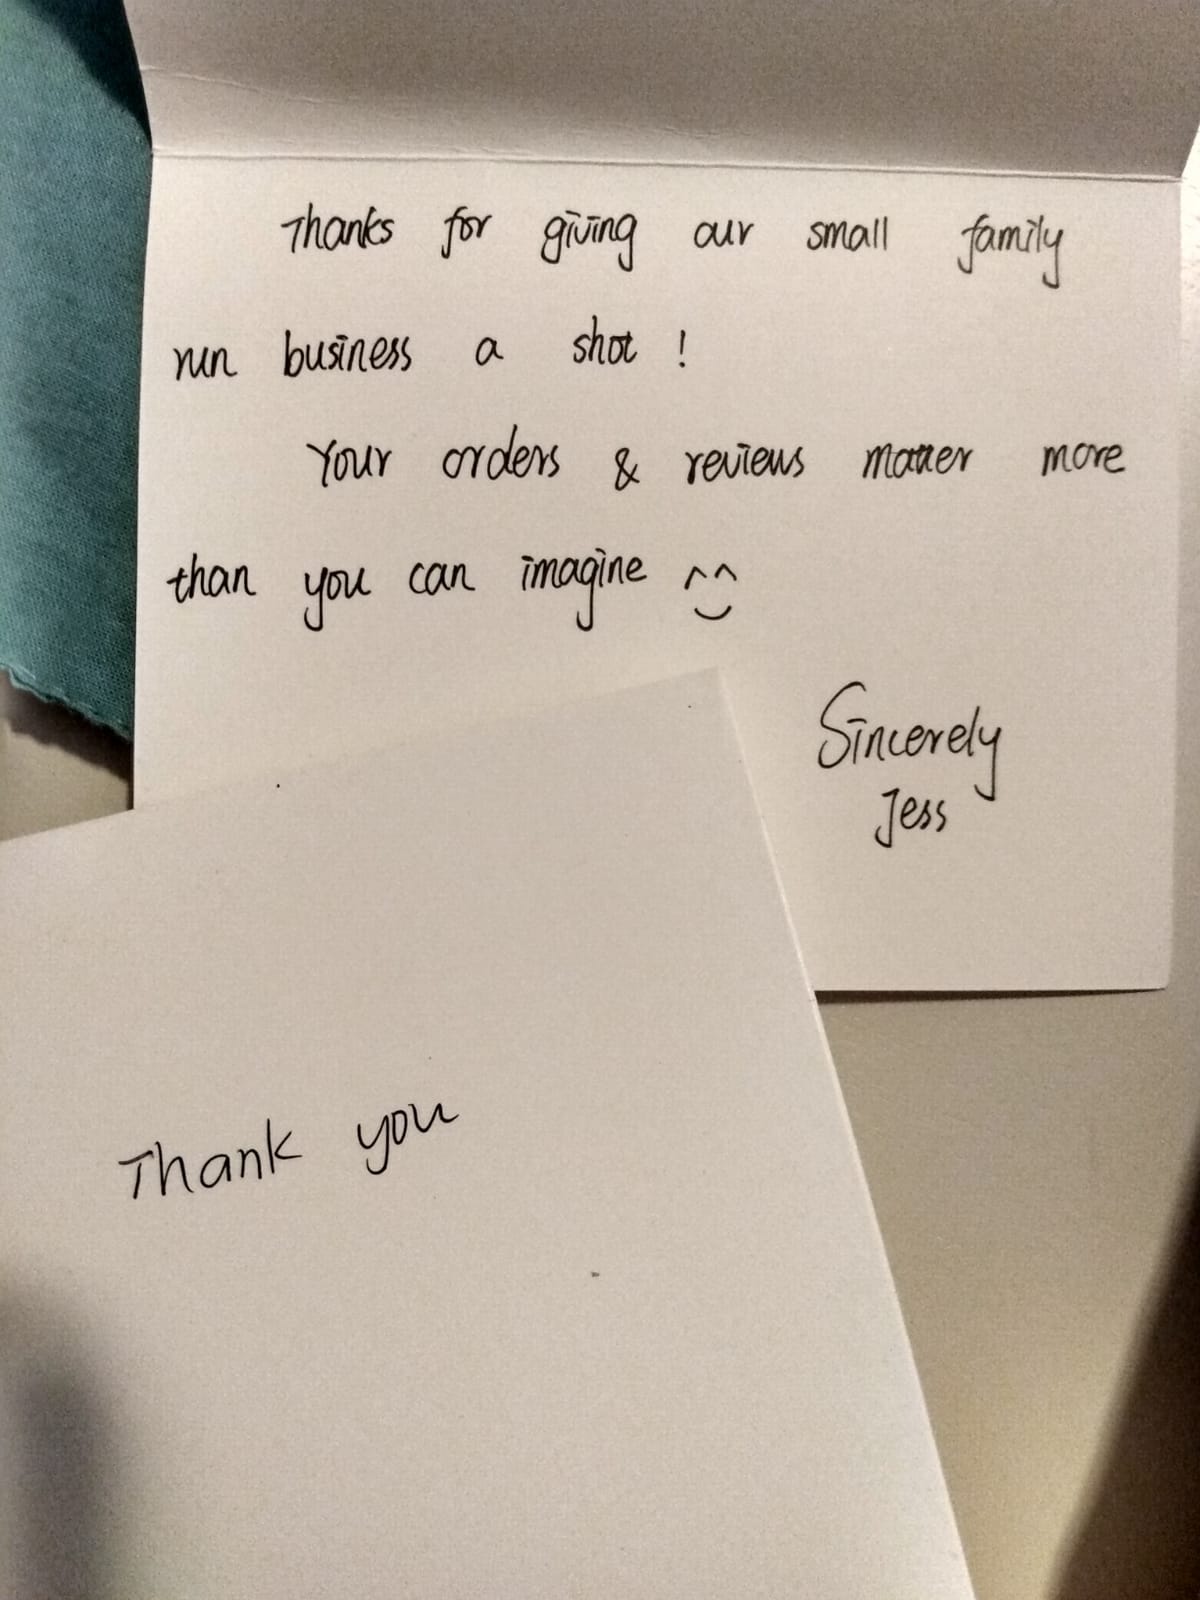 Thanks for giving our small family
run business a shot !
Your orders & reviews matter more
than you can imagine ^^
Sincerely
Jess
Thank you